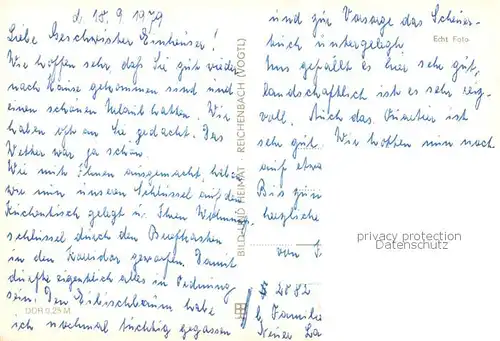 d. 18.9.1979
Liebe Geschwister Einheuser!
Wir hoffen sehr daß Sie gut wieder
nach Hause gekommen sind und
einen schönen Urlaub hatten. Wir
haben oft an Sie gedacht. Das
Wetter war ja schön.
Wie mit Ihnen ausgemacht, haben
wir nun unseren Schlüssel auf den
Küchentisch gelegt u. Ihnen Wohnungs
schlüssel durch den Briefkasten
in den Korridor geworfen. Damit
dürfte eigentlich alles in Ordnung
sein! Den habe
ich nochmal tüchtig gegossen
und zur Vorsorge das Scheuer-
tuch untergelegt.
Uns gefällt es hier sehr gut,
landschaftlich ist es sehr reiz-
voll. Auch das Quartier ist
sehr gut. Wir hoffen nun noch
auf etwa
Bis zum
herzliche
von
2882
b. Familie
Echt Foto
BILD UND HEIMAT · REICHENBACH (VOGTL)
DDR 0,25 M
privacy protection
Datenschutz